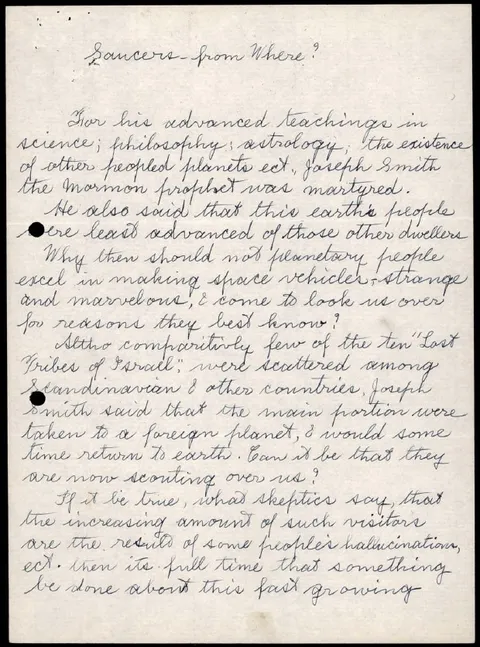 Saucers - from Where?
For his advanced teachings in
science; philosophy; astrology; the existence
of other peopled planets ect. Joseph Smith
the Mormon prophet was martyred.
He also said that this earth's people
were least advanced of those other dwellers
Why then should not planetary people
excel in making space vehicles, strange
and marvelous, & come to look us over
for reasons they best know?
Altho comparitively few of the ten "Lost
Tribes of Israel", were scattered among
Scandinavian & other countries, Joseph
Smith said that the main portion were
taken to a foreign planet, & would some
time return to earth. Can it be that they
are now scouting over us?
If it be true, what skeptics say, that
the increasing amount of such visitors
are the result of some people's hallucinations,
ect. then its full time that something
be done about this fast growing